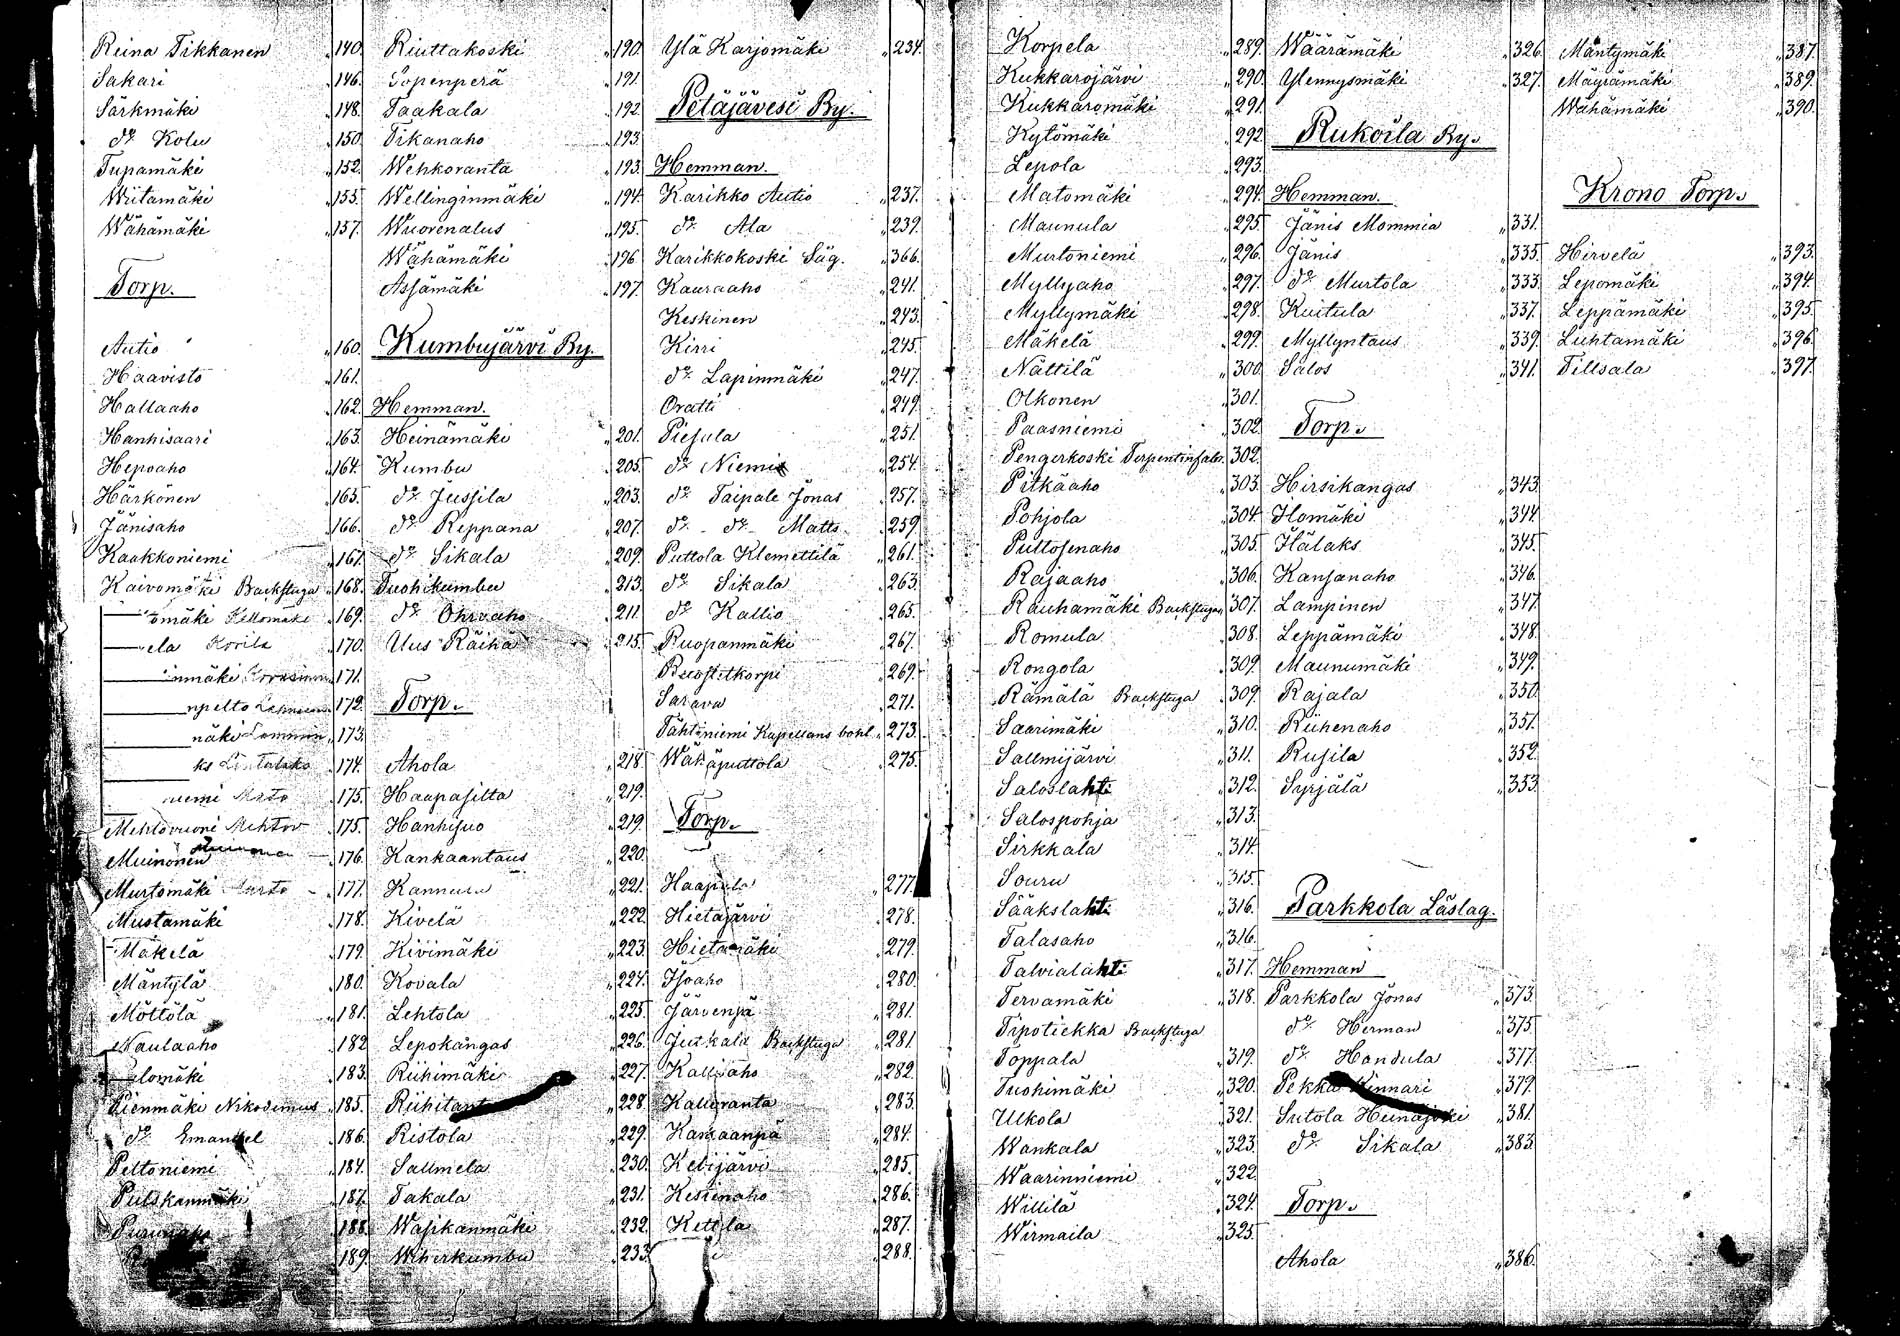 Reina Tikkanen „ 140.
Sakari „ 146.
Särkmäki „ 148.
do Kolu „ 150.
Tupamäki „ 152.
Wiitamäki „ 155.
Wähämäki „ 157.
Torp.
Autio „ 160.
Haavisto „ 161.
Hallaaho „ 162.
Hanhisaari „ 163.
Hepoaho „ 164.
Härkönen „ 165.
Jänisaho „ 166.
Kaakkoniemi „ 167.
Kaivomäki Backstuga „ 168.
omäki Kellomäki „ 169.
ela Korila „ 170.
inmäki „ 171.
npelto „ 172.
näki „ 173.
ks „ 174.
niemi Mato „ 175.
Mehtovuori Mehtov „ 175.
Muinonen Muinonen 176.
Murtomäki Murto „ 177.
Mustamäki „ 178.
Mäkelä „ 179.
Mäntylä „ 180.
Möttölä „ 181.
Naulaaho „ 182
elomäki „ 183.
Pienmäki Nikodemus „ 185.
do Emanuel „ 186.
Peltoniemi „ 184.
Pulskanmäki „ 187.
Purunaho „ 188.
189.
Riuttakoski „ 190.
Sopenperä „ 191.
Taakala „ 192.
Tikanaho „ 193.
Wehkoranta „ 193.
Wellinginmäki „ 194.
Wuorenalus „ 195.
Wähämäki „ 196
Assämäki „ 197.
Kumbujärvi By.
Hemman.
Heinämäki „ 201.
Kumbu „ 205.
do Jussila „ 203.
do Reppana „ 207.
do Sikala „ 209.
Tuohikumbu „ 213.
do Ohraaho „ 211.
Uus Räihä „ 215.
Torp.
Ahola „ 218.
Haapasilta „ 219.
Hanhisuo „ 219.
Kankaantaus „ 220.
Kannura „ 221.
Kivelä „ 222.
Kivimäki „ 223.
Kovala „ 224.
Lehtola „ 225.
Lepokangas „ 226.
Riihimäki „ 227.
„ 228.
Ristola „ 229.
Sallmela „ 230.
Takala „ 231.
Wasikanmäki „ 232.
Wiherkumbu „ 233.
Ylä Karjomäki „ 234.
Petäjävesi By.
Hemman.
Karikko Autio „ 237.
do Ala „ 239.
Karikkokoski Såg. „ 366.
Kauraaho „ 241.
Keskinen „ 243.
Kirri „ 245.
do Lapinmäki „ 247.
Oratti „ 249.
Piesala „ 251.
do Niemi „ 254.
do Taipale Jonas „ 257.
do do Matts „ 259.
Puttola Klemettilä „ 261.
do Sikala „ 263.
do Kallio „ 265.
Ruopanmäki „ 267.
„ 269.
Sarava „ 271.
Tähtiniemi Kapellans bohl „ 273.
Wähäputtola „ 275.
Torp.
Haapala „ 277.
Hietajärvi „ 278.
Hietamäki „ 279.
Isoaho „ 280.
Järvenpä „ 281.
Juikala Backstuga „ 281.
Kallioaho „ 282.
Kallioranta „ 283.
Kangaanpä „ 284.
Kelijärvi „ 285.
Kesseinaho „ 286.
Kettola „ 287.
„ 288.
Korpela „ 289.
Kukkarojärvi „ 290.
Kukkaromäki „ 291.
Kytömäki „ 292.
Lepola „ 293.
Matomäki „ 294.
Maunula „ 295.
Murtoniemi „ 296.
Myllyaho „ 297.
Myllymäki „ 298.
Mäkelä „ 299.
Nättilä „ 300.
Olkonen „ 301.
Paasniemi „ 302.
Pengerkoski Terpentinfabr. „ 302.
Pitkäaho „ 303.
Pohjola „ 304.
Pultosenaho „ 305.
Rajaaho „ 306.
Rauhamäki Backstuga „ 307.
Romula „ 308.
Rongola „ 309.
Rämälä Backstuga „ 309.
Saarimäki „ 310.
Sallmijärvi „ 311.
Saloslahti „ 312.
Salospohja „ 313.
Sirkkala „ 314.
Souru „ 315.
Sääkslahti „ 316.
Talasaho „ 316.
Talvialahti „ 317.
Tervamäki „ 318.
Tipotiekka Backstuga
Toppala „ 319.
Tuohimäki „ 320.
Ulkola „ 321.
Wankala „ 323.
Waarinniemi „ 322.
Willilä „ 324.
Wirmaila „ 325.
Wäärämäki „ 326.
Ylennysmäki „ 327.
Rukoila By.
Hemman.
Jänis Mommia „ 331.
Jänis „ 335.
do Murtola „ 333.
Kuitula „ 337.
Myllyntaus „ 339.
Salos „ 341.
Torp.
Hirsikangas „ 343.
Ilomäki „ 344.
Ilälaks „ 345.
Kansanaho „ 346.
Lampinen „ 347.
Leppämäki „ 348.
Maunumäki „ 349.
Rajala „ 350.
Riihenaho „ 351.
Rusila „ 352.
Syrjälä „ 353.
Parkkola Läslag.
Hemman
Parkkola Jonas „ 373.
do Herman „ 375.
do Handula „ 377.
Pekka Kinnari „ 379.
Sutola Heinäjoki „ 381.
do Sikala „ 383.
Torp.
Ahola „ 386.
Mäntymäki „ 387.
Mäyrämäki „ 389.
Wähämäki „ 390.
Krono Torp.
Hirvelä „ 393.
Lepomäki „ 394.
Leppämäki „ 395.
Luhtamäki „ 396.
Tillsala „ 397.